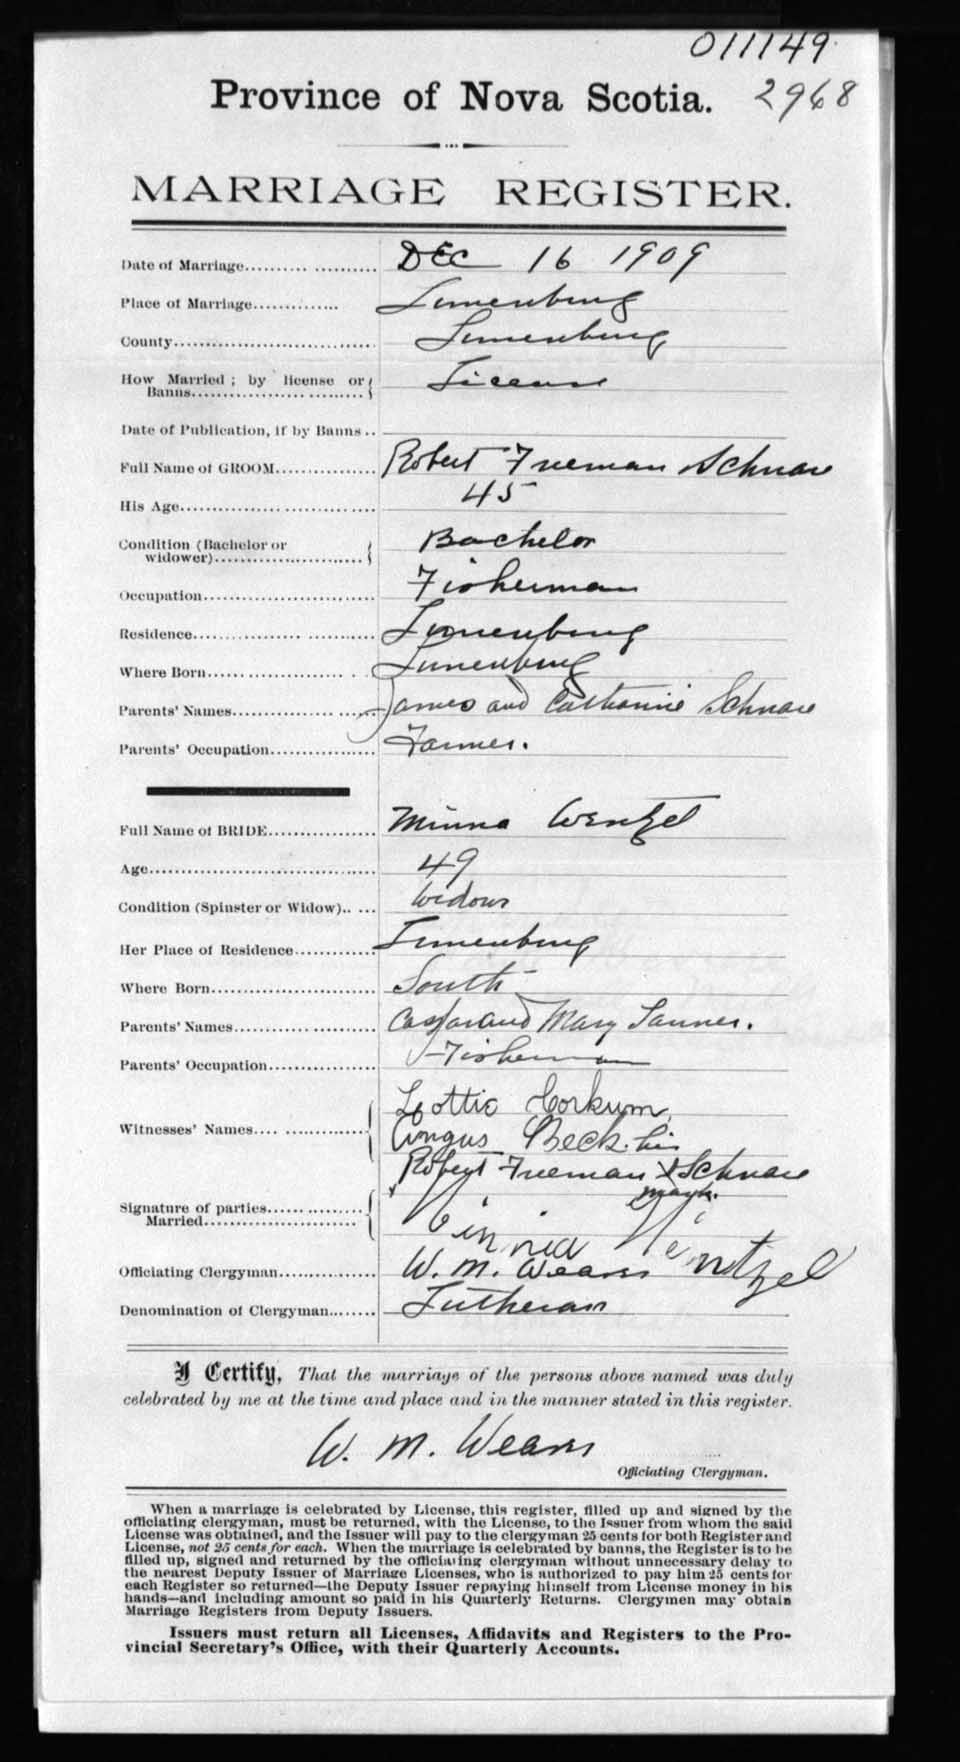 011149
Province of Nova Scotia. 2968
MARRIAGE REGISTER.
Date of Marriage DEC 16 1909
Place of Marriage Lunenburg
County Lunenburg
How Married; by license or
Banns License
Date of Publication, if by Banns
Full Name of GROOM Robert Freeman Schnare
His Age 45
Condition (Bachelor or
widower) Bachelor
Occupation Fisherman
Residence Lunenburg
Where Born Lunenburg
Parents' Names James and Catharine Schnare
Parents' Occupation Farmer.
Full Name of BRIDE Minna Wentzel
Age 49
Condition (Spinster or Widow) Widow
Her Place of Residence Lunenburg
Where Born South
Parents' Names Caspar and Mary Tanner.
Parents' Occupation Fisherman
Witnesses' Names Lottie Corkum
Angus Beck his
Robert Freeman X Schnare
mark.
Signature of parties
Married Wentzel
Officiating Clergyman W. M. Weaver
Denomination of Clergyman Lutheran
I Certify, That the marriage of the persons above named was duly
celebrated by me at the time and place and in the manner stated in this register.
W. M. Weaver
Officiating Clergyman.
When a marriage is celebrated by License, this register, filled up and signed by the
officiating clergyman, must be returned, with the License, to the Issuer from whom the said
License was obtained, and the Issuer will pay to the clergyman 25 cents for both Register and
License, not 25 cents for each. When the marriage is celebrated by banns, the Register is to be
filled up, signed and returned by the officiating clergyman without unnecessary delay to
the nearest Deputy Issuer of Marriage Licenses, who is authorized to pay him 25 cents for
each Register so returned—the Deputy Issuer repaying himself from License money in his
hands—and including amount so paid in his Quarterly Returns. Clergymen may obtain
Marriage Registers from Deputy Issuers.
Issuers must return all Licenses, Affidavits and Registers to the Pro-
vincial Secretary's Office, with their Quarterly Accounts.